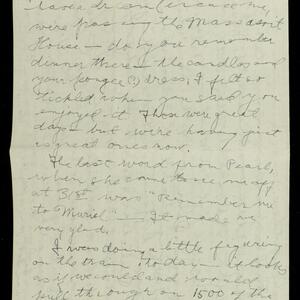 were passing the Massasoit
House — do you remember
dinner there — the candles and
your pongee (?) dress, I felt so
tickled when you said you
enjoyed it. Them were great
days — but we're having just
as great ones now.
The last word from Pearl,
when she came to see me off
at 31st was "Remember me
to Muriel" — It made me
very glad.
I was doing a little figuring
on the train to-day — it looks
as if we could and
pull through on 1500 of the